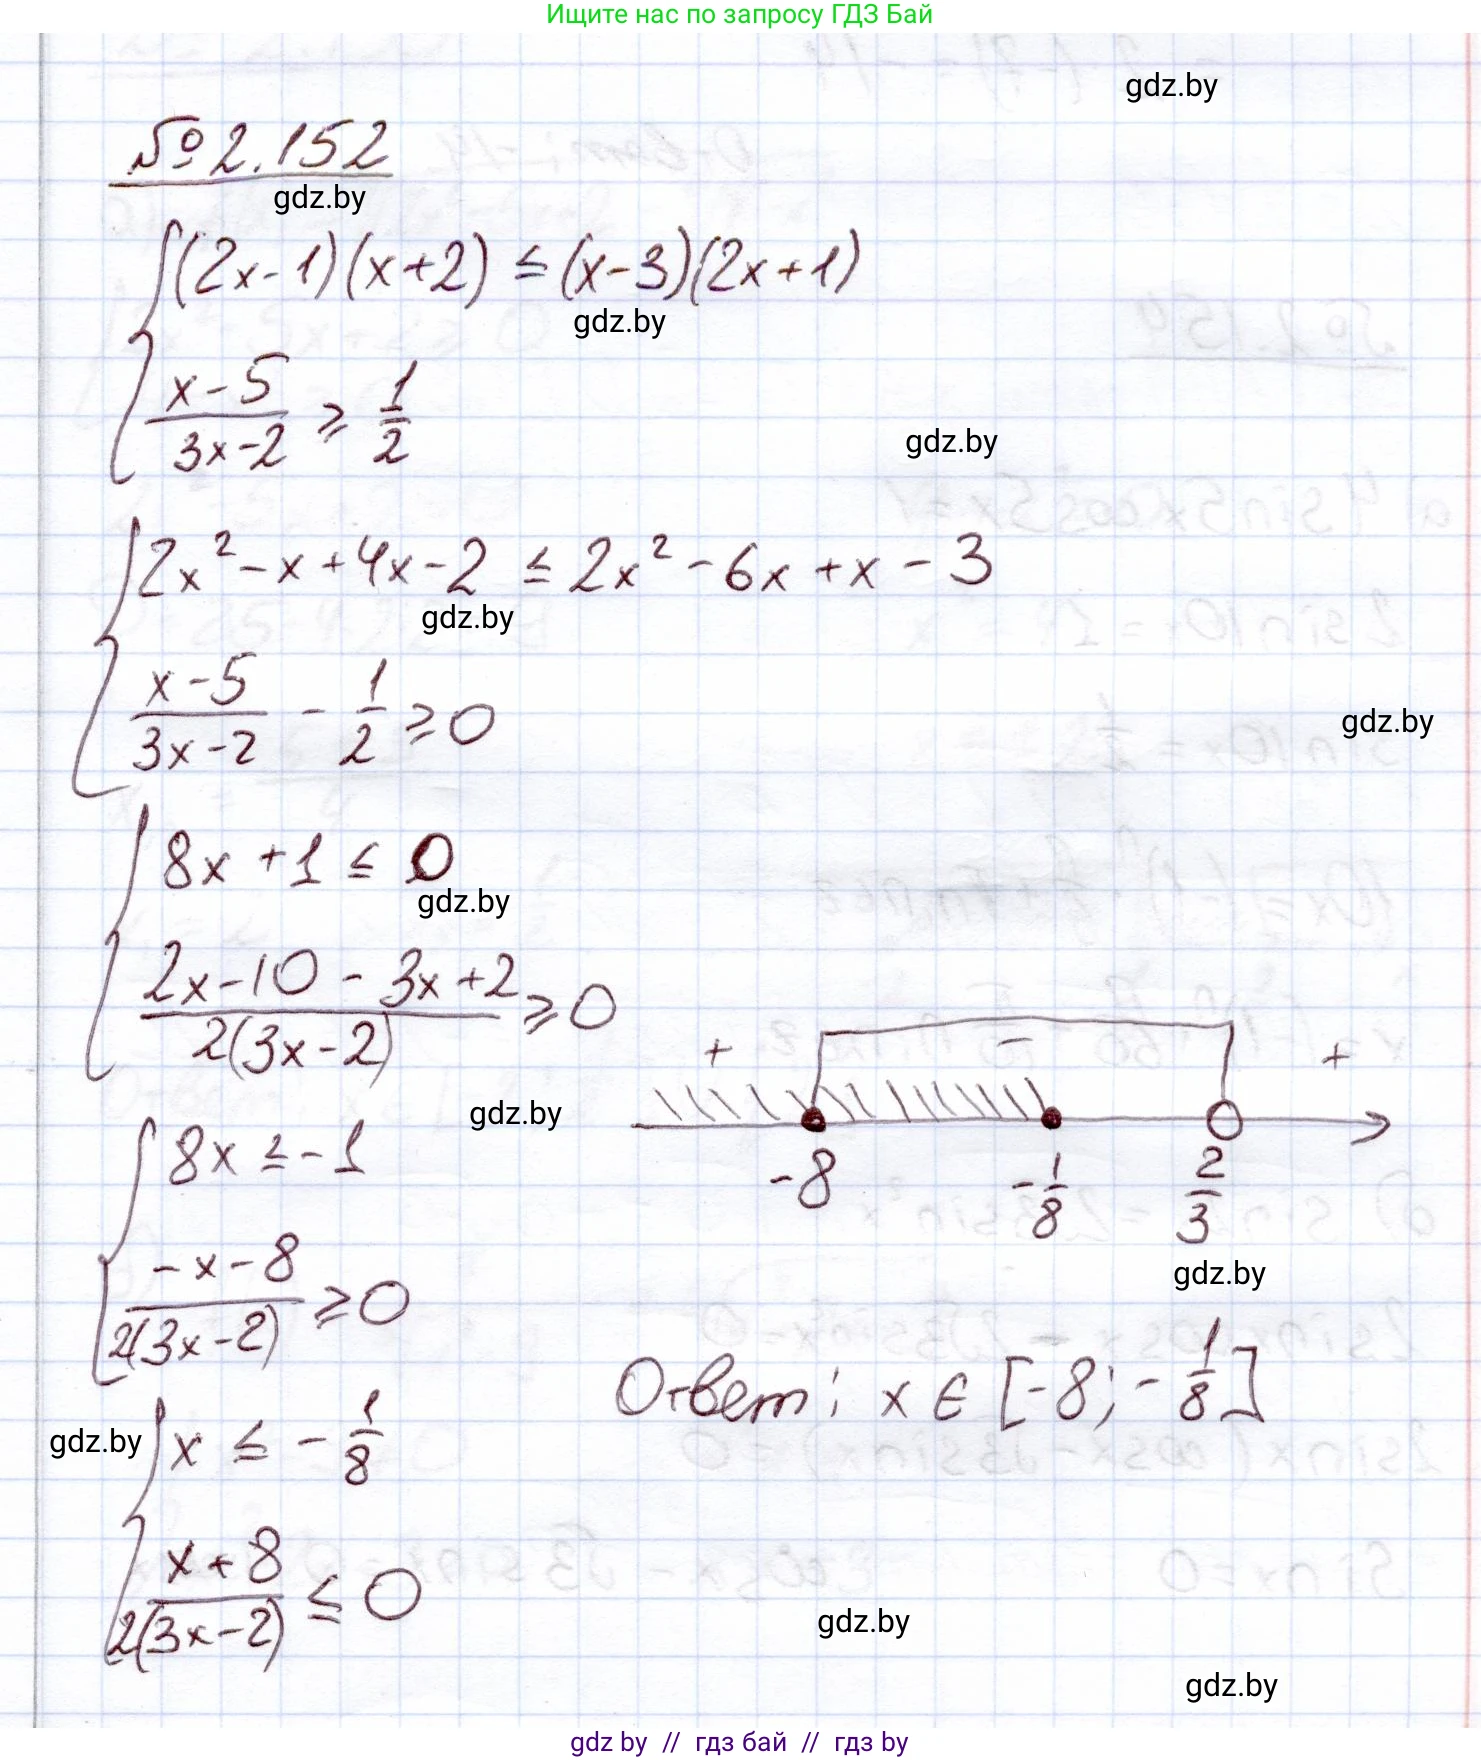 Ищите нас по запросу ГДЗ Бай
gdz.by
№2.152
gdz.by
(2x-1)(x+2) ≤ (x-3)(2x+1)
gdz.by
(x-5)/(3x-2) ≥ 1/2
gdz.by
2x² - x + 4x - 2 ≤ 2x² - 6x + x - 3
gdz.by
(x-5)/(3x-2) - 1/2 ≥ 0
gdz.by
8x + 1 ≤ 0
gdz.by
(2x-10-3x+2)/(2(3x-2)) ≥ 0
+ - +
gdz.by
8x ≤ -1
-8 -1/8 2/3
gdz.by
(-x-8)/(2(3x-2)) ≥ 0
Ответ: x ∈ [-8; -1/8]
gdz.by
x ≤ -1/8
(x+8)/(2(3x-2)) ≤ 0
gdz.by
gdz.by
gdz by // гдз бай // гдз by